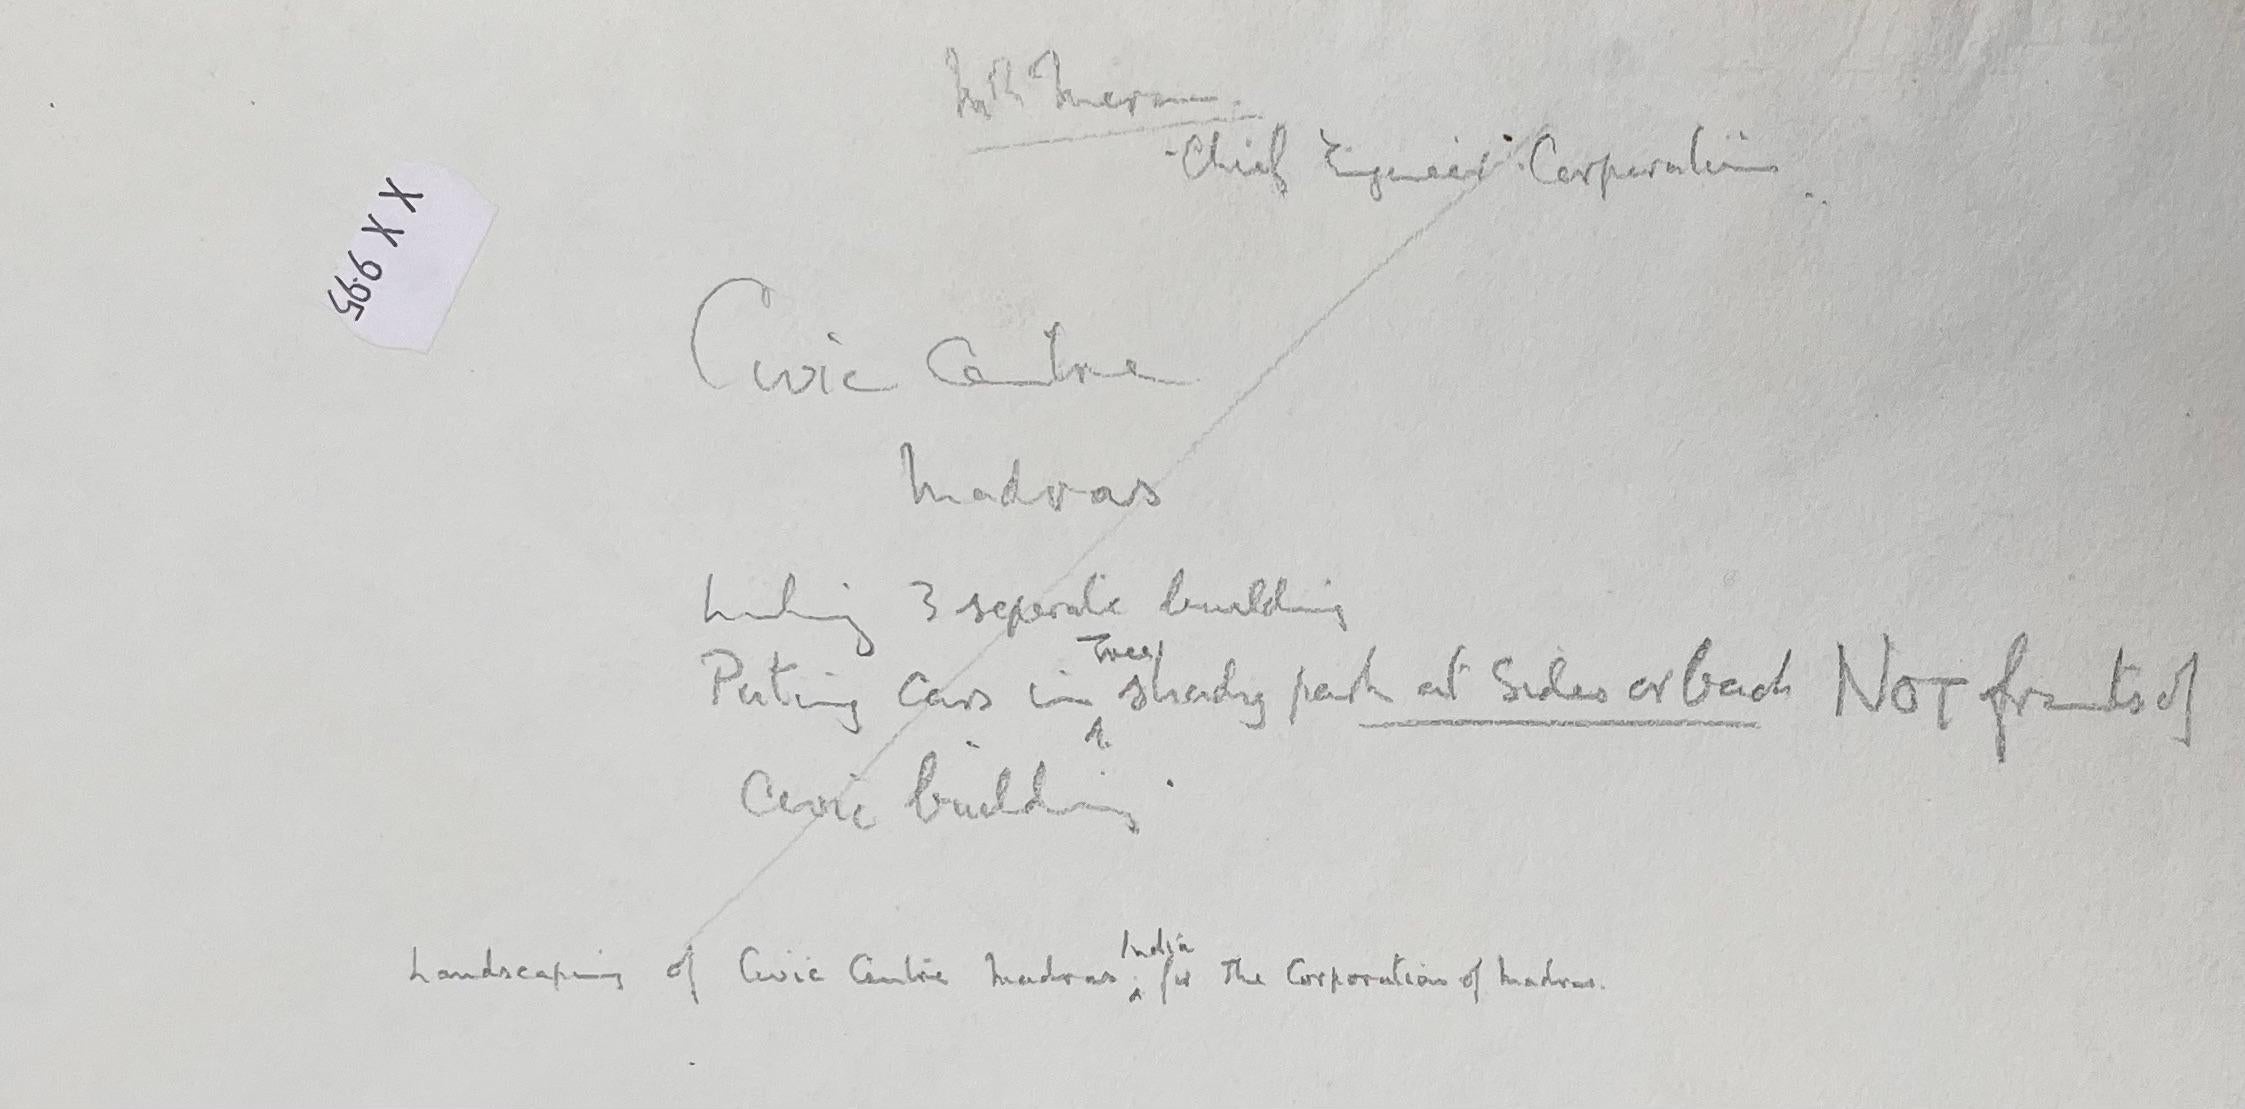 Mr Menon.
Chief Engineer Corporation
X X 9.95
Civic Centre
Madras
Linking 3 separate building
Putting cars in Tree shady park at Sides or back NOT fronts of
Civic building.
Landscaping of Civic Centre Madras India for The Corporation of Madras.